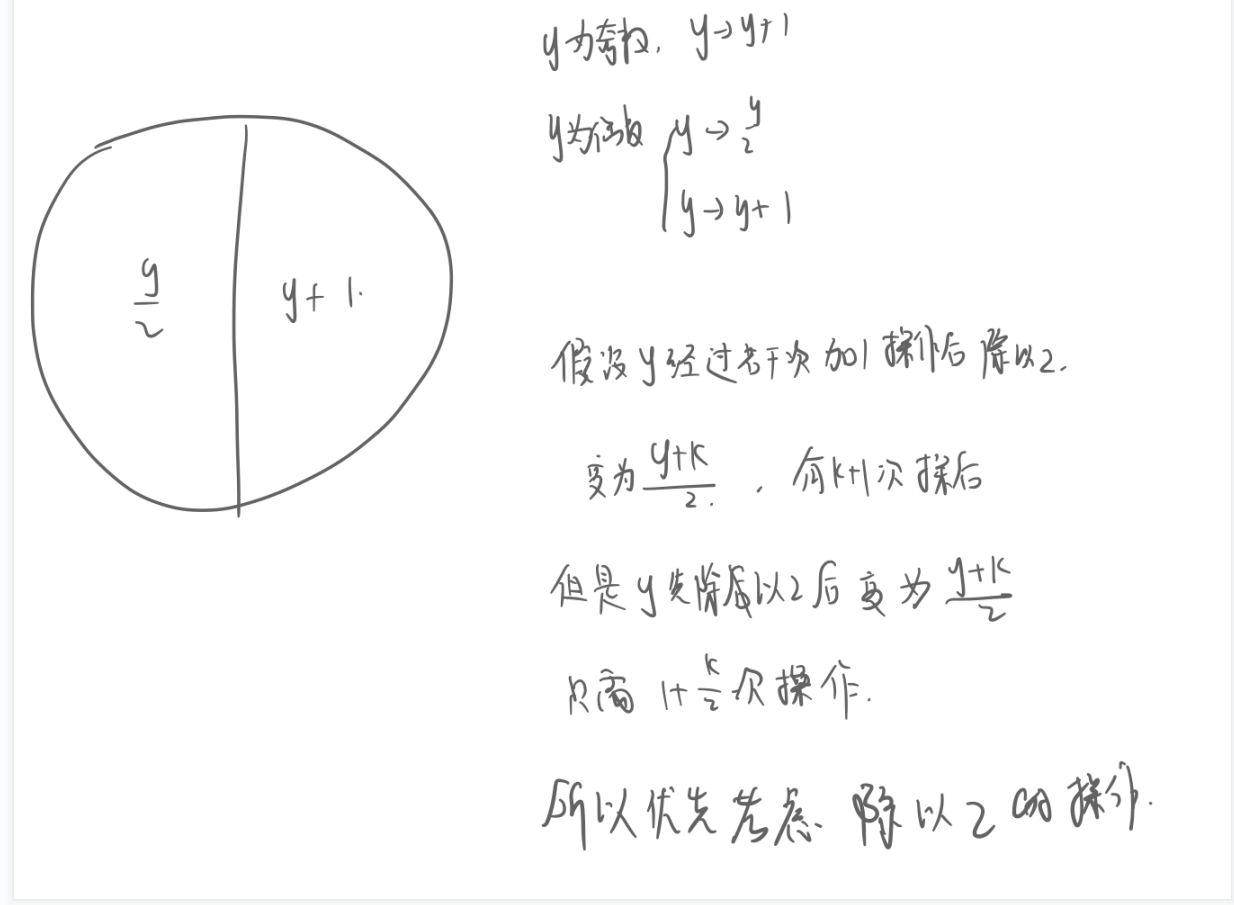 y/2
y+1.
y为奇数, y→y+1
y为偶数 { y→y/2
y→y+1
假设y经过若干次加1操作后除以2.
变为 (y+k)/2. , 有k+1次操后
但是y先除以2后变为 (y+k)/2
只需 1+k/2 次操作.
所以优先考虑 除以2的操作.